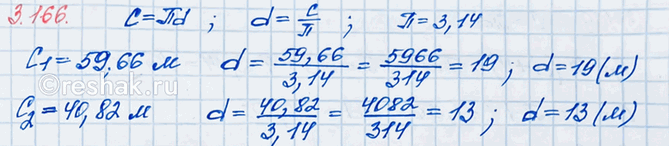 3.166. C=Пd ; d=C/П ; П=3,14
C₁=59,66 м d=59,66/3,14=5966/314=19 ; d=19(м)
C₂=40,82 м d=40,82/3,14=4082/314=13 ; d=13(м)
©Reshak.ru